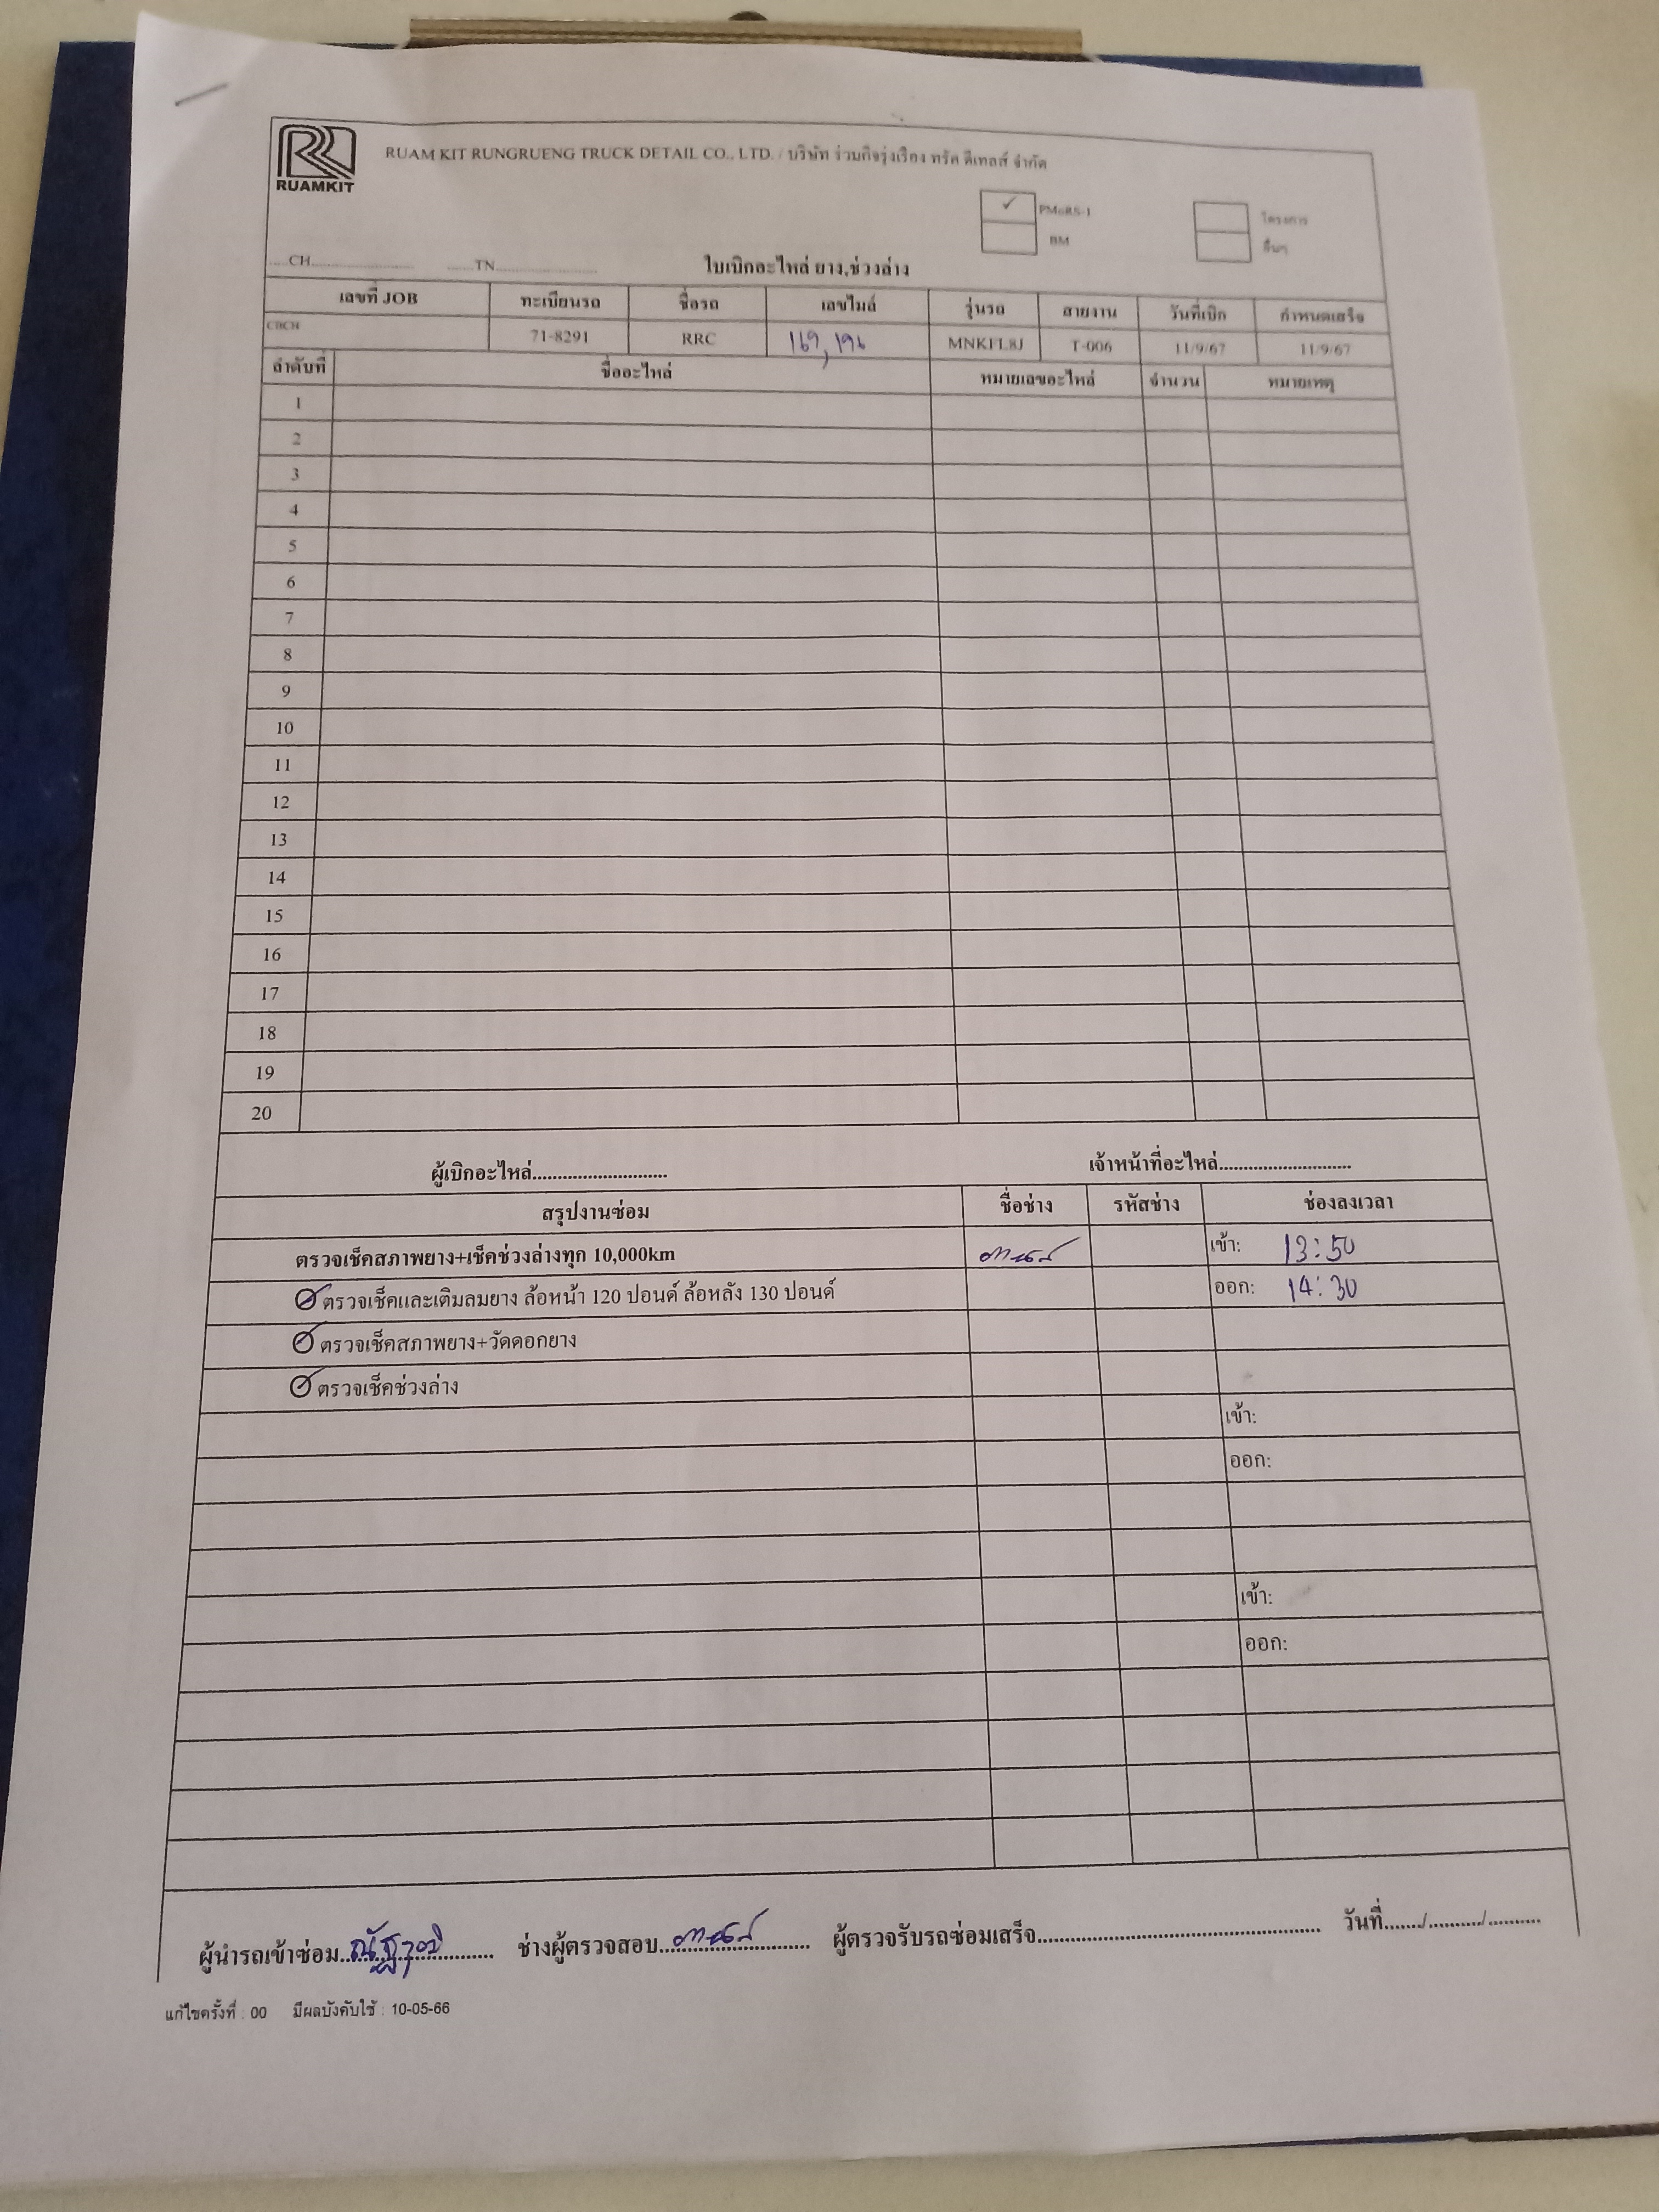 RUAMKIT
RUAM KIT RUNGRUENG TRUCK DETAIL CO., LTD. / บริษัท ร่วมกิจรุ่งเรือง ทรัค ดีเทลส์ จำกัด
✓ PM&RS-1 โครงการ
BM อื่นๆ
.....CH.......................... .......TN..........................
ใบเบิกอะไหล่ ยาง,ช่วงล่าง
เลขที่ JOB ทะเบียนรถ ชื่อรถ เลขไมล์ รุ่นรถ สายงาน วันที่เบิก กำหนดเสร็จ
71-8291 RRC 169,196 T-006 11/9/67 11/9/67
ลำดับที่ ชื่ออะไหล่ หมายเลขอะไหล่ จำนวน หมายเหตุ
1
2
3
4
5
6
7
8
9
10
11
12
13
14
15
16
17
18
19
20
ผู้เบิกอะไหล่............................ เจ้าหน้าที่อะไหล่............................
สรุปงานซ่อม ชื่อช่าง รหัสช่าง ช่องลงเวลา
ตรวจเช็คสภาพยาง+เช็คช่วงล่างทุก 10,000km เข้า: 13:50
ตรวจเช็คและเติมลมยาง ล้อหน้า 120 ปอนด์ ล้อหลัง 130 ปอนด์ ออก: 14:30
ตรวจเช็คสภาพยาง+วัดดอกยาง
ตรวจเช็คช่วงล่าง
เข้า:
ออก:
เข้า:
ออก:
ผู้นำรถเข้าซ่อม ณัฐวุฒิ ช่างผู้ตรวจสอบ ผู้ตรวจรับรถซ่อมเสร็จ............................ วันที่......./........../..........
แก้ไขครั้งที่ : 00 มีผลบังคับใช้ : 10-05-66